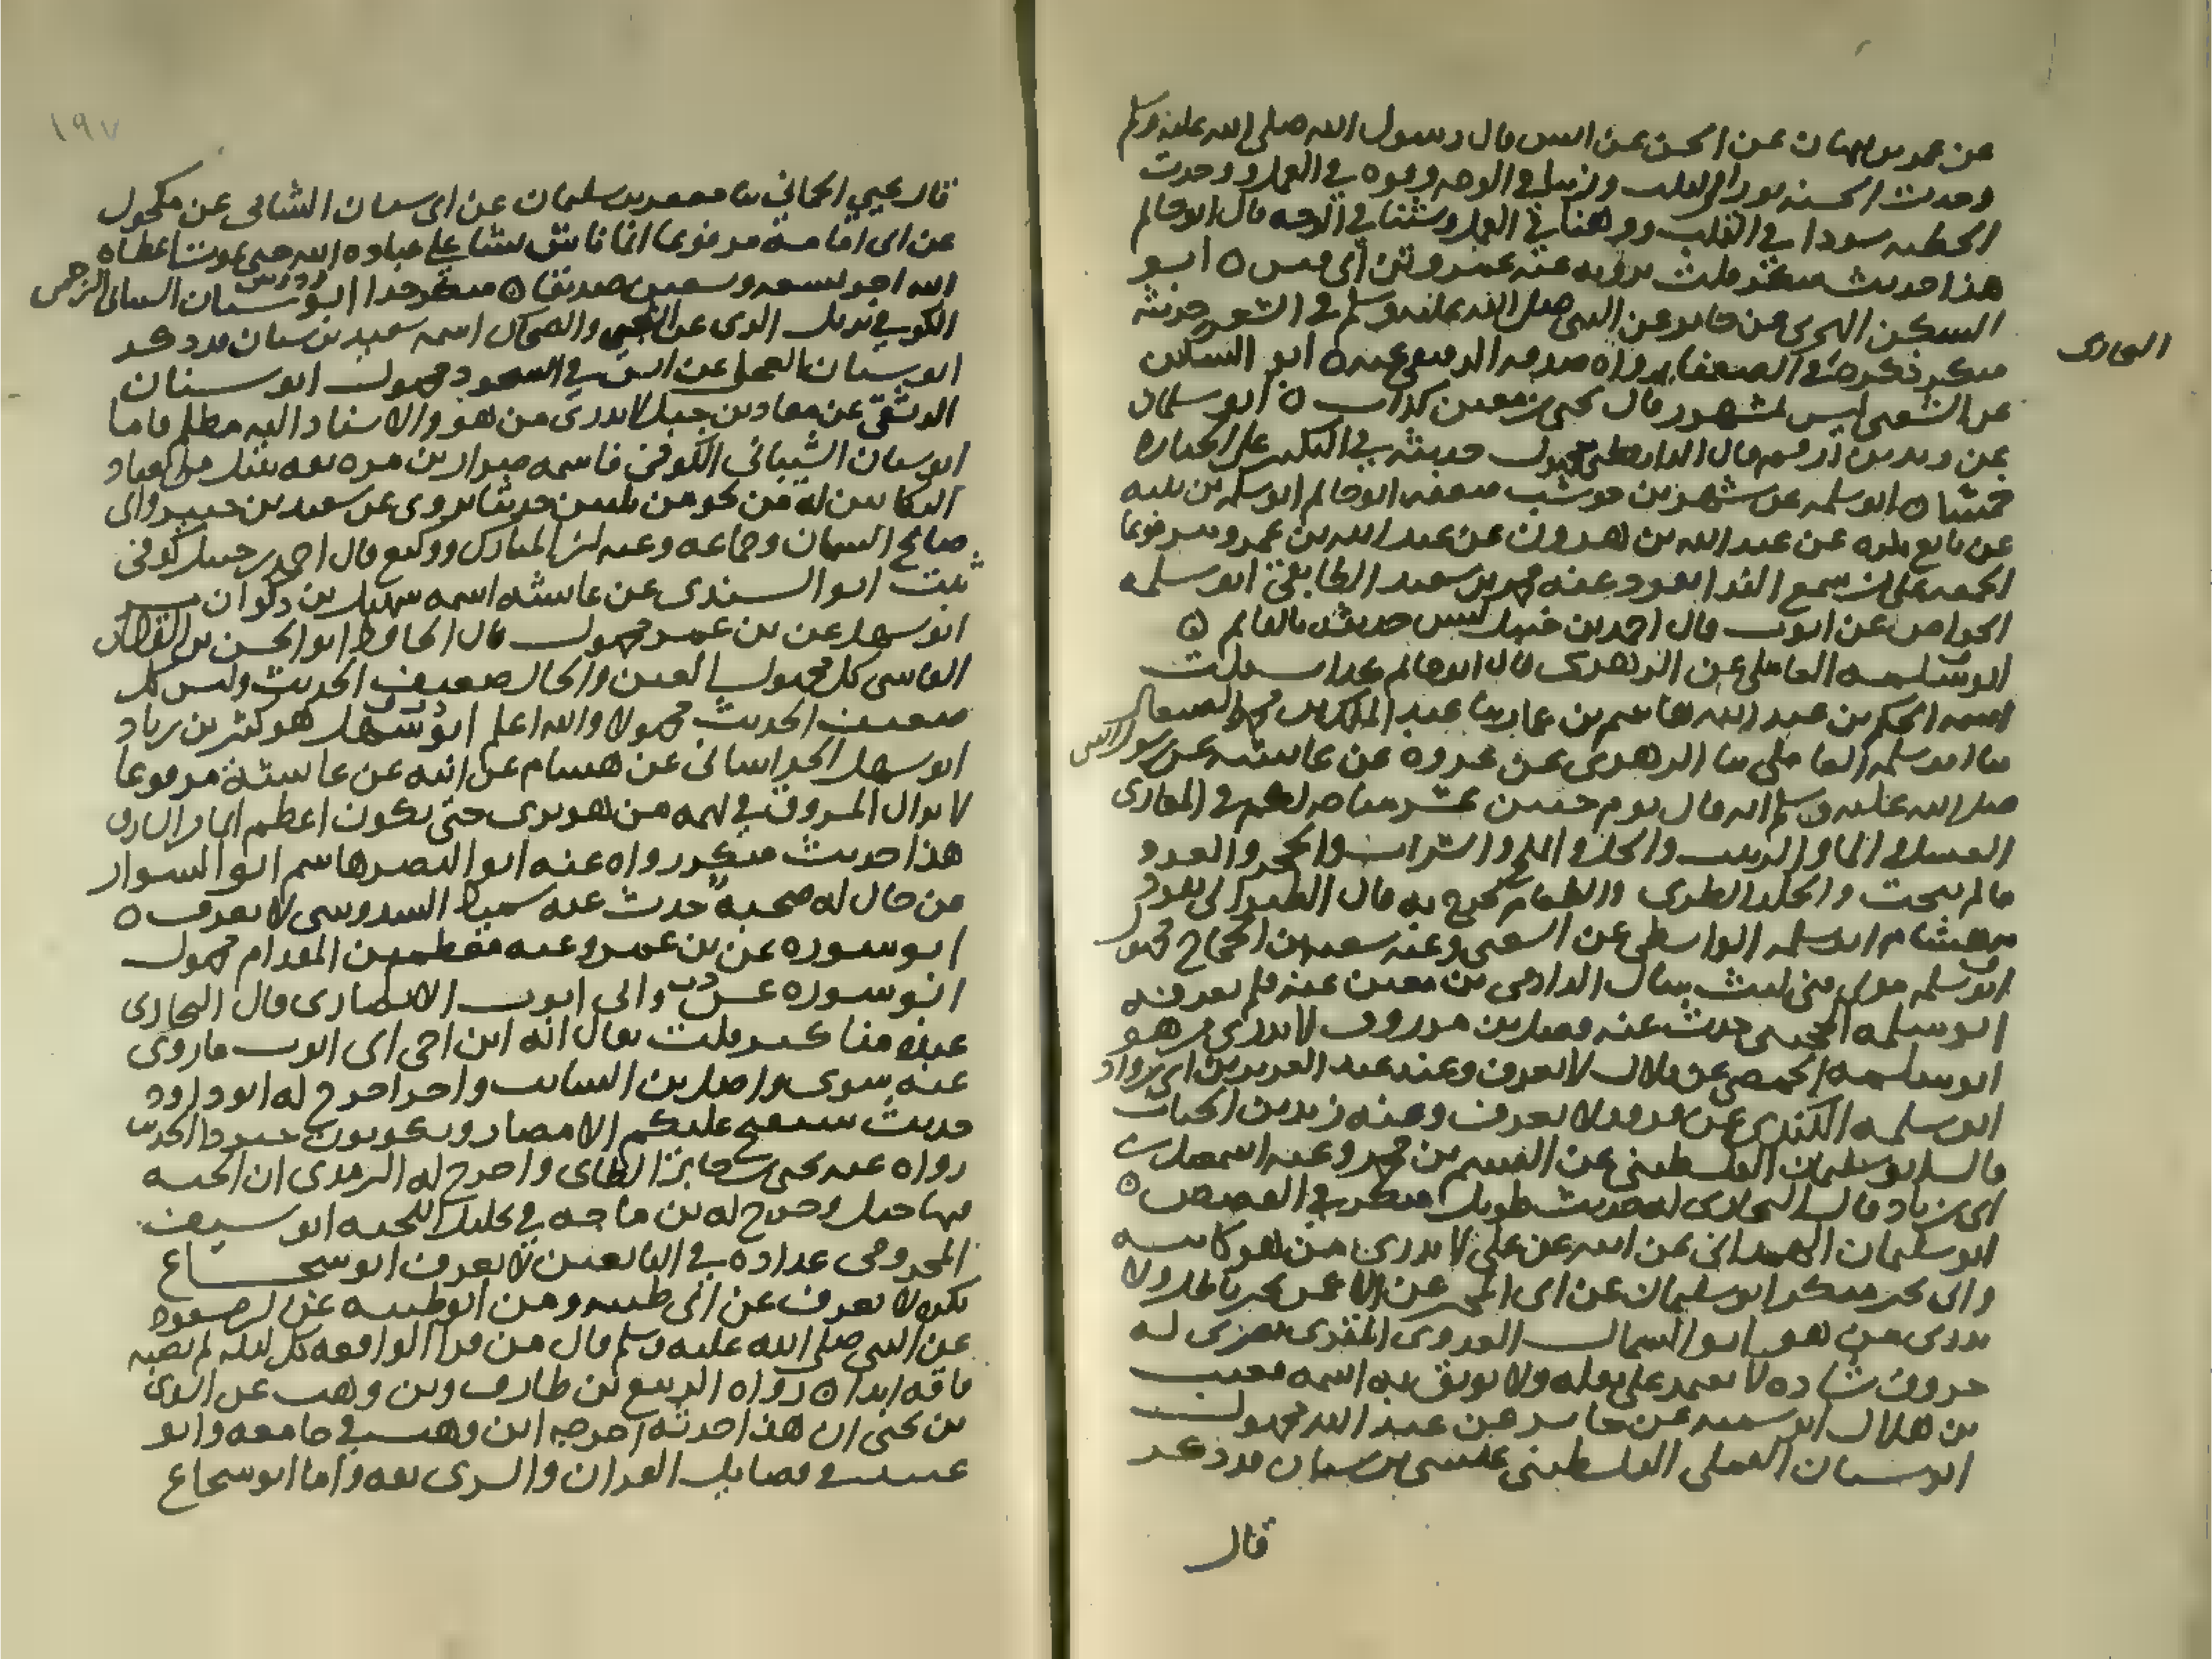 عن عمر بن نبهان عن الحسن عن انس قال رسول الله صلى الله عليه وسلم
وجدت الحسنة نورا في القلب وزينا في الوجه وقوة في العمل ووجدت
الخطيه سودا في القلب ووهنا في العمل وشينا في الوجه قال ابو حاتم
هذا حديث منكر قلت يرويه عنه عمرو بن ابي قيس ٥ ابو
السكن الهجري عن جابر عن النبي صلى الله عليه وسلم في الشعر حديثه
منكر ذكره في الضعفا رواه صدقه الدقيقي عنه ٥ ابو السكن
البخاري
عن الشعبي ليس بمشهور وقال يحيى بن معين كذاب ٥ ابو سلمان
عن زيد بن ارقم قال الدارقطني مجهول حديثه في التكبير على الجنازه
خمسا ٥ ابو سلمه عن شهر بن حوشب ضعفه ابو حاتم ابو سلمه بن نبيه
عن تابع بلده عن عبد الله بن هرون عن عبد الله بن عمرو مرفوعا
الجمعه على من سمع الندا تفرد عنه محمد بن سعيد الطايفي ابو سلمه
الخواص عن ايوب قال احمد بن حنبل ليس حديثه بالقايم ٥
ابو سلمه العاملي عن الزهري قال ابو حاتم كذاب قلت
اسمه الحكم بن عبد الله هشام بن عمار بنا عبد الملك بن محمد الصنعاني
بنا ابو سلمه العاملي بنا الزهري عن عروه عن عايشه عن رسول الله
صلى الله عليه وسلم انه قال يوم حنين عشر مباحه لكم في المغازي
العسل والما والزبيب والخل والملح والتراب والحجر والعود
ما لم ينحت والجلد الطري والطعام يخرج به قال الطبراني تفرد
به هشام ابو سلمه الواسطي عن الشعبي وعنه سعيد بن الحجاج مجهول
ابو سلمه مولى بني ليث سال الدارمي بن معين عنه فلم يعرفه
ابو سلمه الجهني حدث عنه فضيل بن مرزوق لا يدرى من هو
ابو سلمه الحمصي عن بلال لا يعرف وعنه عبد العزيز بن ابي رواد
ابو سلمه الكندي عن فرقد لا يعرف وعنه زيد بن الحباب
قال ابو سلمان الفلسطيني عن القسم بن محمد وعنه اسمعيل بن
ابي زياد قال البخاري له حديث طويل منكر في القصص ٥
ابو سلمان الهمداني عن ابيه عن علي لا يدرى من هو كابيه
واتى بخبر منكر ابو سليمان عن ابي المحبر عن الاعمش بخبر باطل ولا
يدرى من هو ابو السمال العدوي المقري يعزى له
حروف شاذه لا يعتمد على نقله ولا يوثق به اسمه قعنب
بن هلال ابو سميه عن جابر بن عبد الله مجهول
ابو سنان القسملي الفلسطيني عيسى بن سنان قد ذكر
قال
١٩٧
قال يحيى الحماني بنا جعفر بن سلمان عن ابي سنان الشامي عن مكحول
عن ابي امامة مرفوعا ايما ناشى نشا على عباده الله حتى يموت اعطاه
الله اجر تسعه وتسعين صديقا ٥ منكر جدا ابو سنان الشيباني البرجمي
الكوفي نزيل الري عن الشعبي والضحاك اسمه سعيد بن سنان قد ذكر
ابو سنان القسملي عن انس في السجود مجهول ابو سنان
الدمشقي عن معاذ بن جبل لا يدرى من هو والاسناد اليه مظلم فاما
ابو سنان الشيباني الكوفي فاسمه ضرار بن مره ثقه نبيل من العباد
البكايين له نحو من ثلثين حديثا يروي عن سعيد بن جبير وابي
صالح السمان وجماعه وعنه بن المبارك ووكيع قال احمد بن حنبل كوفي
ثبت ابو السندي عن عايشه اسمه سهيل بن ذكوان مر
ابو سهل عن بن عمر مجهول قال الحافظ ابو الحسن بن القطان
الفاسي كل مجهول العين والحال ضعيف الحديث وليس كل
ضعيف الحديث مجهولا والله اعلم ابو سهل هو كثير بن زياد
ابو سهل الخراساني عن هشام عن ابيه عن عايشة مرفوعا
لا يزال المسروق في تهمه من هو برى حتى يكون اعظم اثما من السارق
هذا حديث منكر رواه عنه ابو النضر هاشم ابو السوار
عن خال له صحبة حدث عنه سميط السدوسي لا يعرف ٥
ابو سوره عن بن عمر وعنه مقطم بن المقدام مجهول
ابو سوره عن ابي ايوب الانصاري قال البخاري
عنده مناكير قلت يقال انه ابن اخي ابي ايوب ما روى
عنه سوى واصل بن السايب واخر اخرج له ابو داود
حديث ستفتح عليكم الامصار ويكونون جنودا الحديث
رواه عنه يحيى بن جابر الطاي واخرج له الترمذي ان الجنه
فيها خيل وخرج له بن ماجه في تخليل اللحيه ابو سيف
المخزومي عداده في التابعين لا يعرف ابو شجاع
نكره لا يعرف عن ابي طيبه ومن ابو طيبه عن بن مسعود
عن النبي صلى الله عليه وسلم قال من قرا الواقعه كل ليله لم تصبه
فاقه ابدا ٥ رواه الربيع بن طارق وبن وهب عن السري
بن يحيى ان هذا حدثه اخرجه ابن وهب في جامعه وابو
عبيد في فضايل القران والسري ثقه واما ابو شجاع